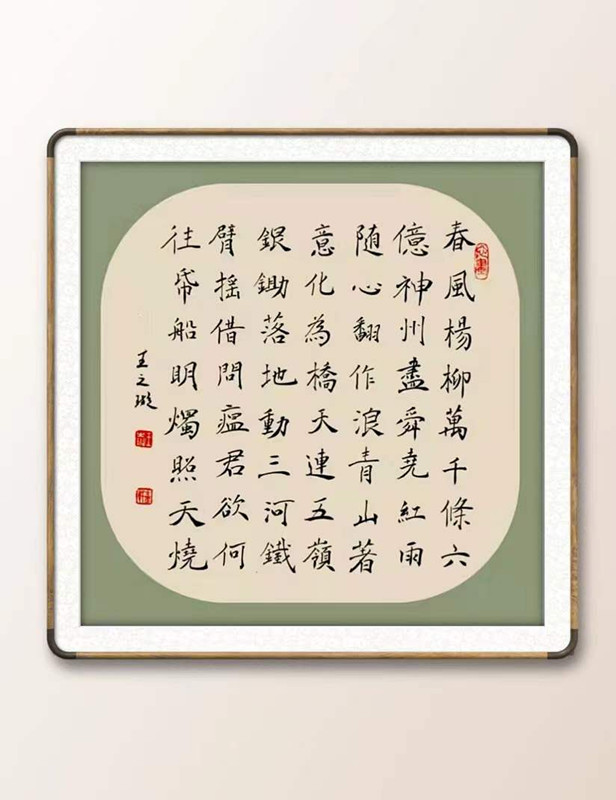 春風楊柳萬千條六
億神州盡舜堯紅雨
随心翻作浪青山著
意化為橋天連五嶺
銀鋤落地動三河鐵
臂摇借問瘟君欲何
往帋船明燭照天燒
王之璇